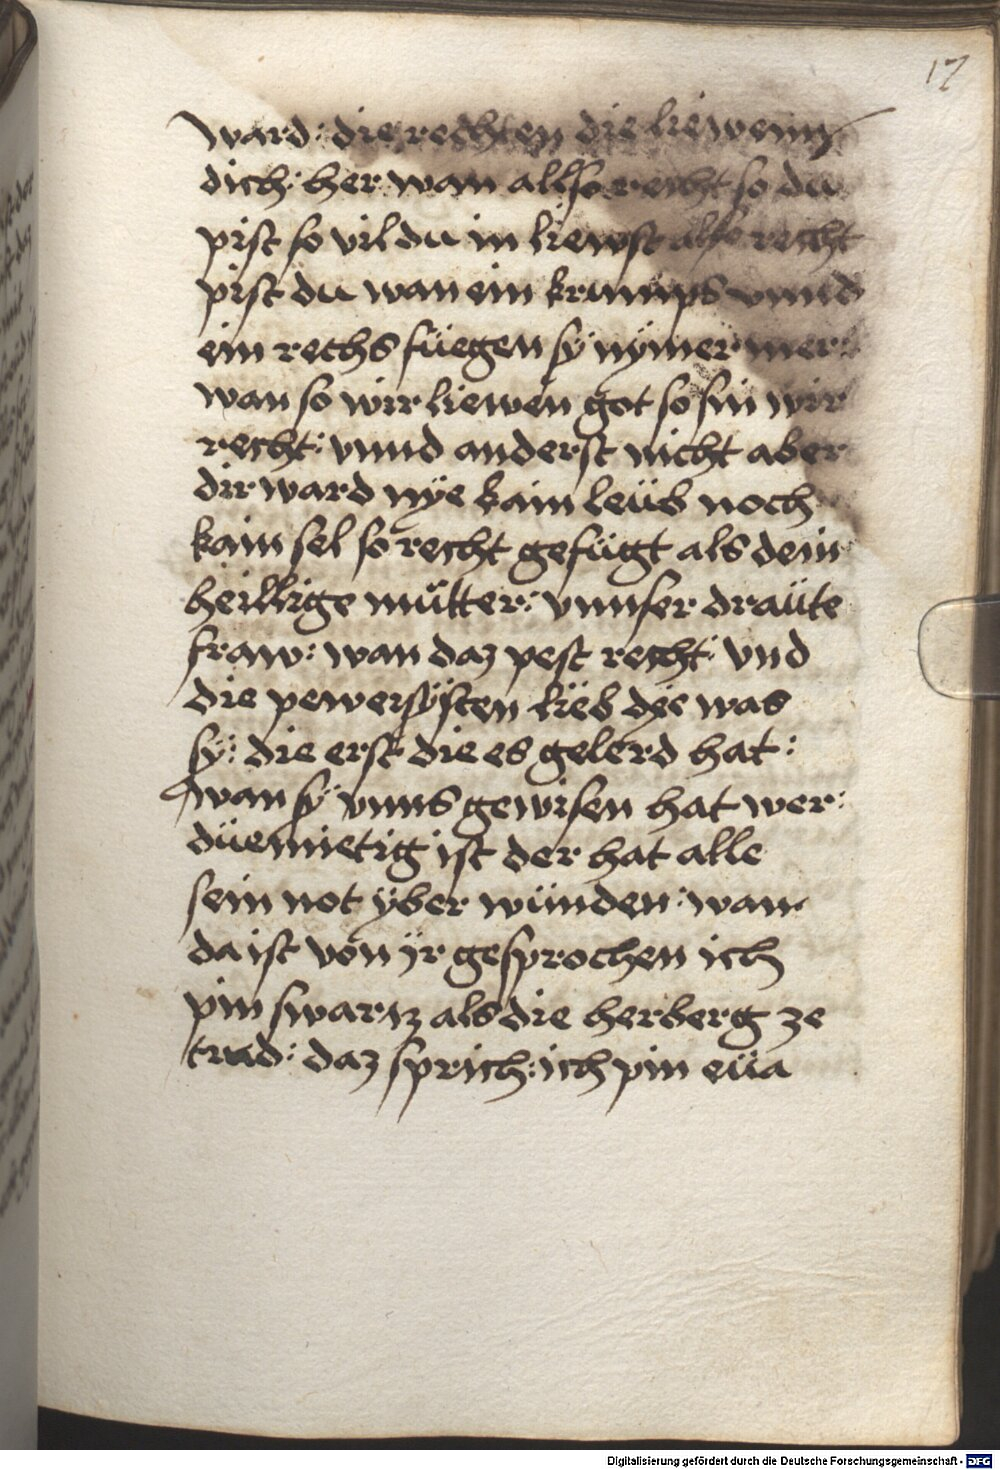 17
ward: die rechten die liewenn
dich: her wan allso recht so du
pist so vil du in liewst also recht
pist du wan ein krumps vnnd
ein rechs füegen sÿ nÿmer mer:
wan so wir liewen got so sin wir
recht: vnnd anderst nicht aber
dir ward nÿe kain leüb noch
kain sel so recht gefügt als dein
heillige mütter: vnnser draüte
fraw: wan daz pest recht: vnd
die pewersÿsten lieb dÿe was
sÿ: die erst die es gelerd hat:
wan sÿ vnns gewisen hat wer:
düemietig ist der hat alle
sein not ÿber wünden: wan
da ist von ÿr gesprochen ich
pin swartz als die herberg ze
trad: daz sprich: ich pin eüa
Digitalisierung gefördert durch die Deutsche Forschungsgemeinschaft - DFG